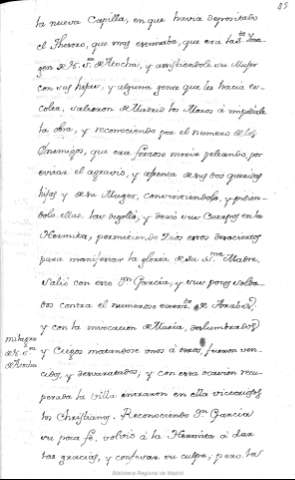 85
la nueva Capilla, en que havia depositado
el Thesoro, que mas estimaba, que era la S.ta Yma-
gen de N. S.ra de Atocha, y assistiendole su Muger
con sus hijas, y alguna gente que les hacia es-
colta, salieron de Madrid los Moros á impedirle
la obra, y reconociendo por el numero de los
Enemigos, que era forzoso morir peleando, por
evitar el agravio, y afrenta de sus dos queridas
hijas y de su Muger, conviniendolo, y pidien-
dolo ellas las degolló, y dexó sus Cuerpos en la
Hermita, permitiendo Dios estos
para manifestar la gloria de su S.ma Madre,
salió con esto D.n Garcia, y sus pocos Solda-
dos contra el numeroso de Arabes,
y con la invocacion de Maria, deslumbrados,
milagro
de N. S.ra
de Atocha
y Ciegos matandose unos á otros, fueron ven-
cidos, y desvaratados, y con esta ocasion recu-
perada la Villa entraron en ella victoriosos
los Christianos. Reconociendo D.n Garcia
su poca fe, volvió á la Hermita á dar
las gracias, y confesar su culpa; pero la
Biblioteca Regional de Madrid